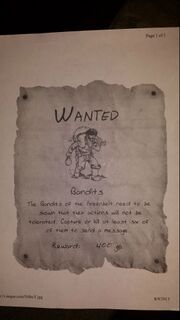 Page 1 of 1
WANTED
Bandits
The Bandits of the Greenbelt need to be
shown that their actions will not be
tolerated. Capture or kill at least six of
of them to send a message.
Reward: 400 gp